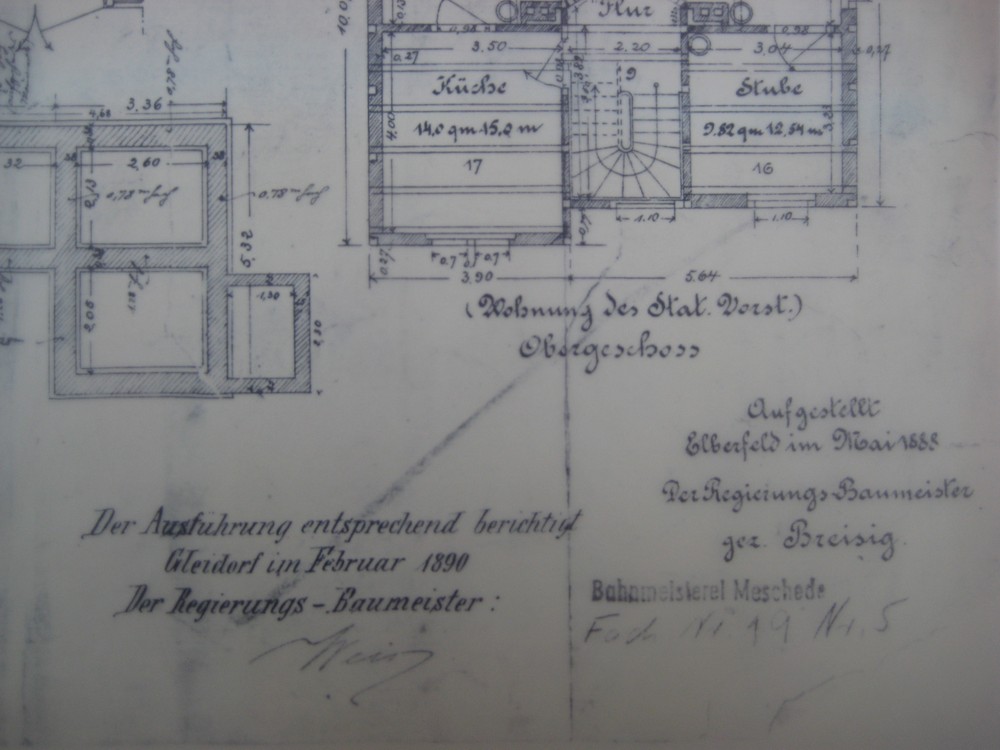 Flur
3.50
2.20
3.04
0.27
Küche
9
Stube
4.00
14.0 qm 15.0 m
9.82 qm 12.54 m
17
16
1.10
1.10
0.7
0.7
0.27
3.90
5.64
4,68
3.36
32
2.60
0,78
0.78
5.32
2,05
1,30
(Wohnung des Stat. Vorst.)
Obergeschoss
Aufgestellt
Elberfeld im Mai 1888
Der Regierungs-Baumeister
gez. Breisig.
Der Ausführung entsprechend berichtigt
Gleidorf im Februar 1890
Der Regierungs-Baumeister:
Bahnmeisterei Meschede
Fach Nr. 19 Nr. 5